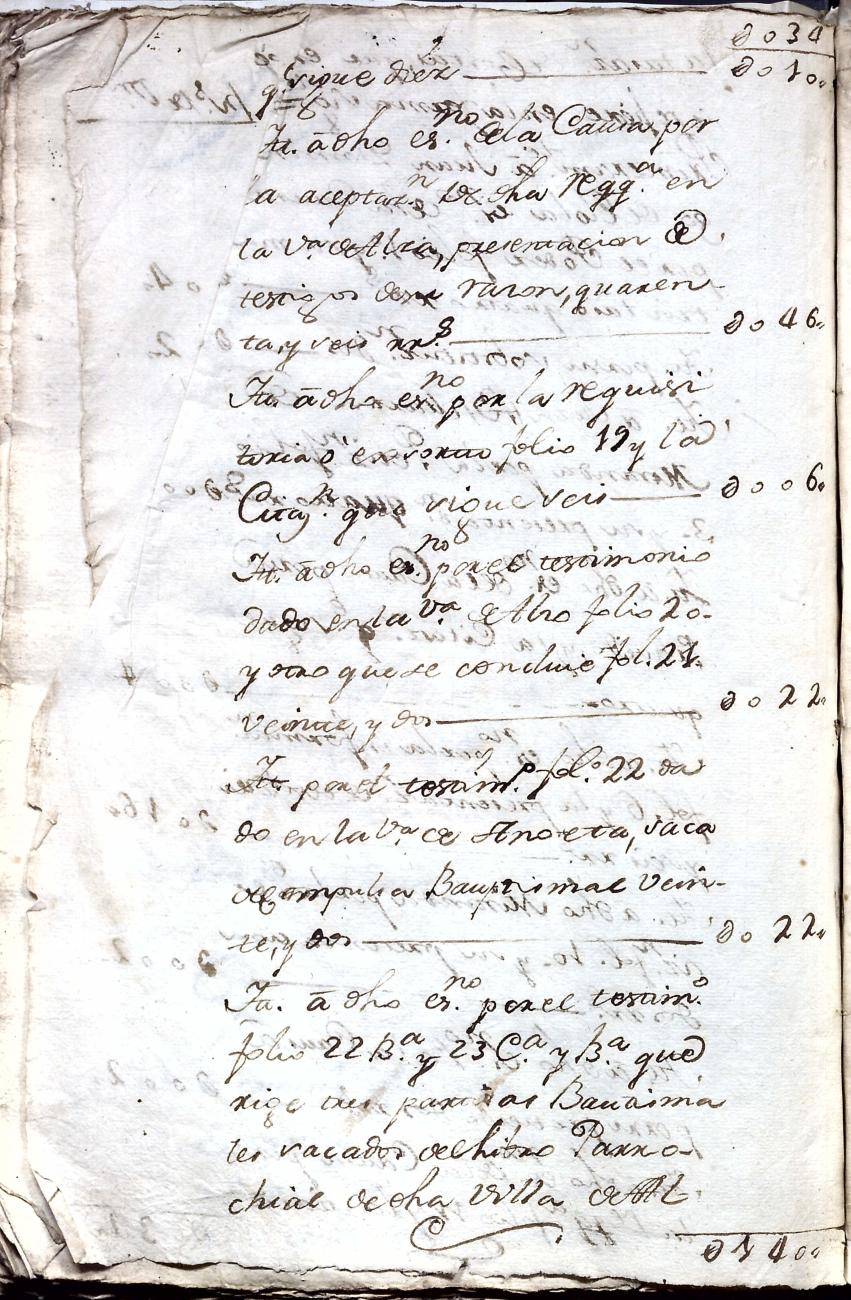 0034
sigue diez 0010
It. â dho es.no de la Causa por
la aceptaz.n de dha reqq.a en
la V.a de Alvia, presentacion de
testigos desu razon, quaren-
ta, y seis rr.s 0046
It. â dho es.no por la requisi
toria ô exorto folio 19 y la
Citaz.n que sigue seis 0006
It. â dho es.no por el testimonio
dado en la V.a de folio 20.
y otro que se concluie fol. 21.
veinte, y dos 0022
It por el testim.o fol.o 22 da
do en la V.a de Anoeta, saca
de Bautismal vein-
te, y dos 0022
It. â dho es.no por el testim.o
folio 22 B.a y 23 C.a y B.a que
rige tres partidas Bautisma
les sacadas del libro Parro-
chial de dha Villa de
0140